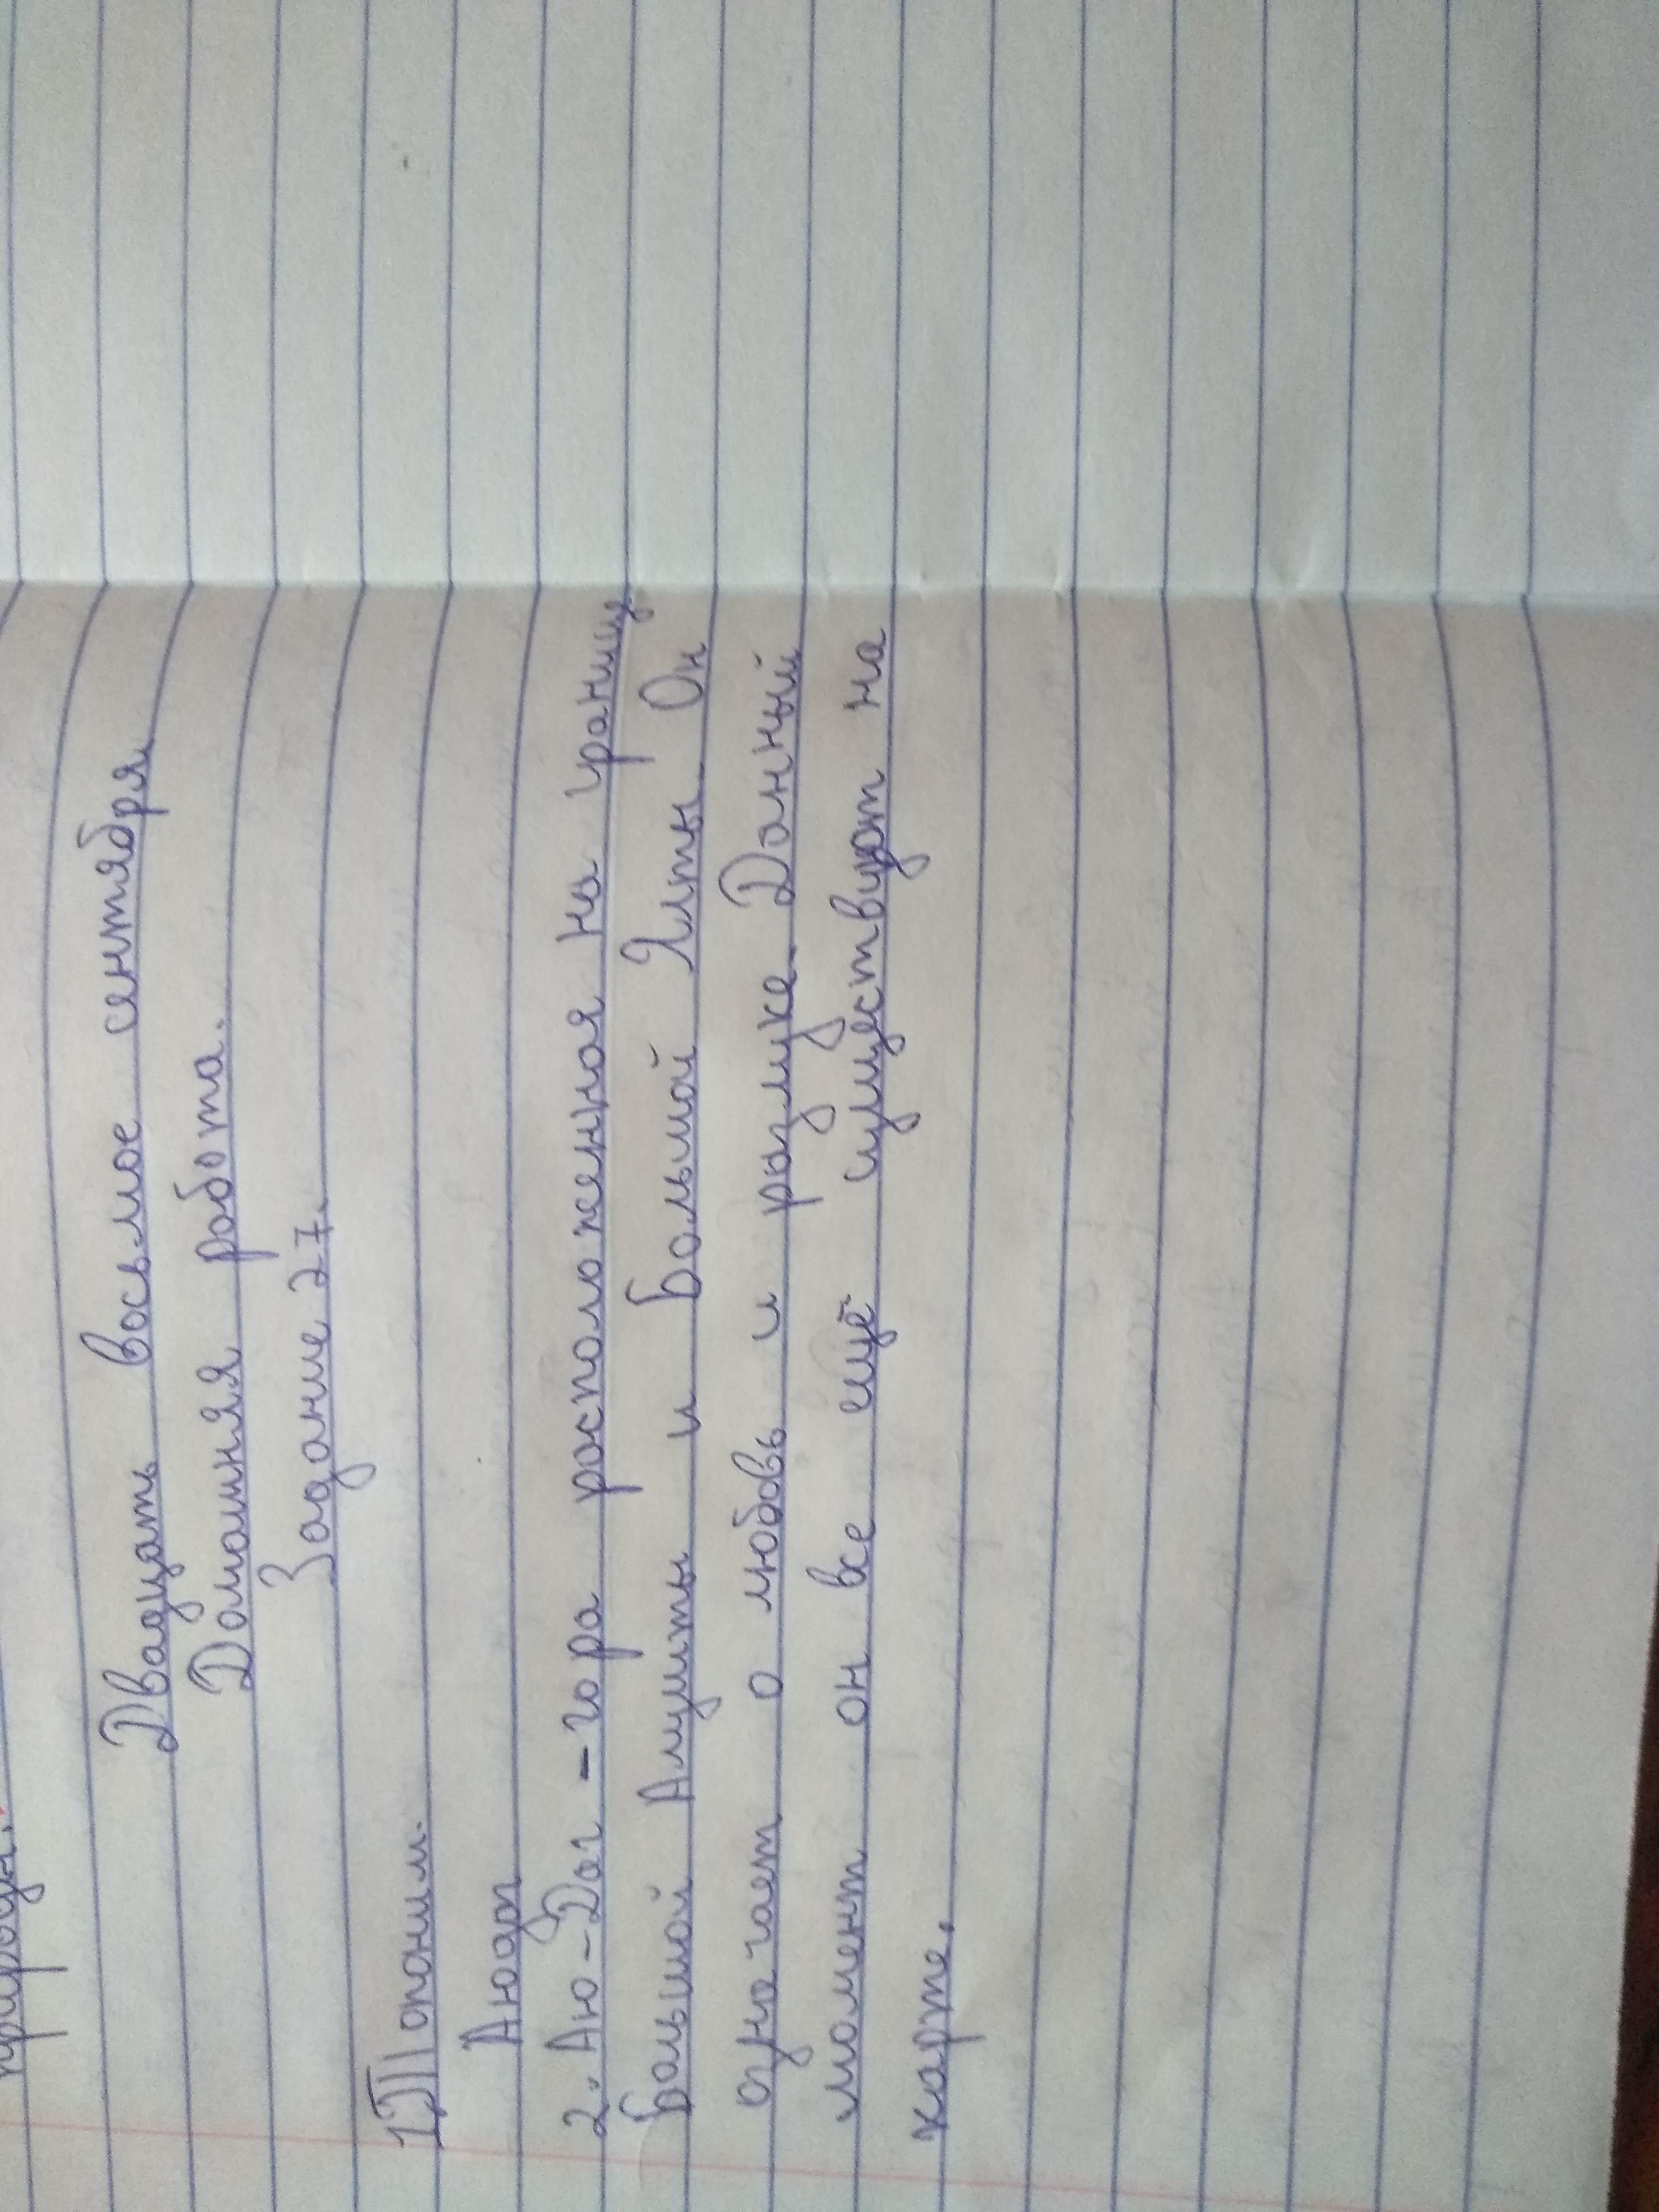 природы.
Двадцать восьмое сентября
Домашняя работа.
Задание 27.
1) Топоним.
Аюдаг
2. Аю-Даг - гора расположенная на границ
Большой Алушты и Большой Ялты. Он
означает о любовь и разлуке. Данный
момент он все ещё существуют на
карте.